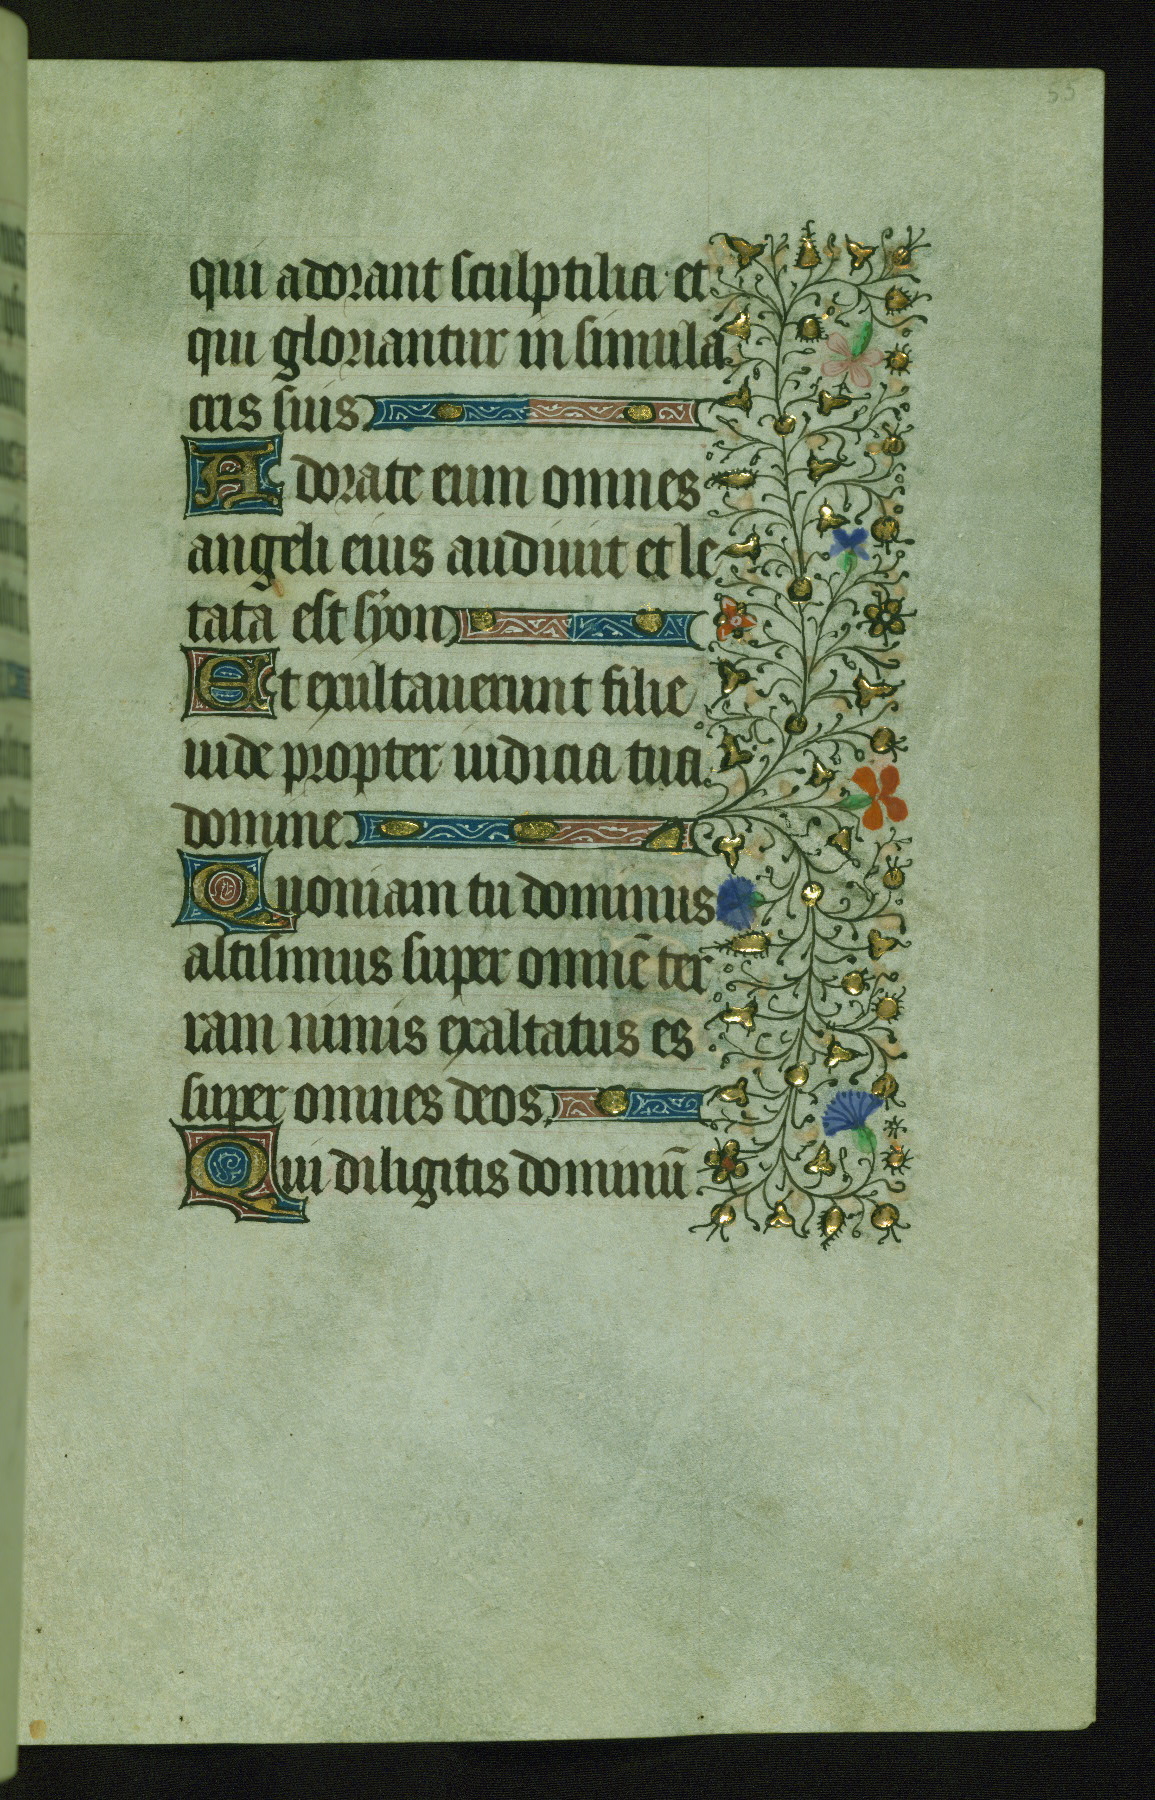 55
qui adorant sculptilia et
qui gloriantur in simula
cris suis
Adorate eum omnes
angeli eius audiuit et le
tata est syon
Et exultauerunt filie
iude propter iudicia tua
domine
Quoniam tu dominus
altissimus super omnē ter
ram nimis exaltatus es
super omnes deos
Qui diligitis dominū